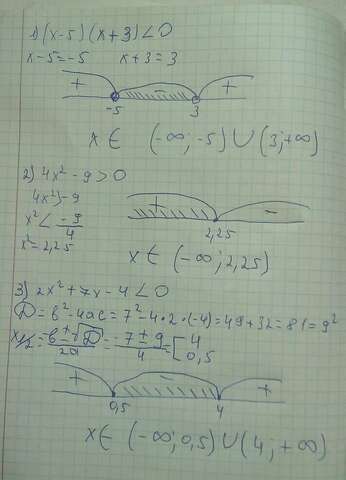 1) (x-5) (x+3) < 0
x-5=-5 x+3=3
+ - +
-5 3
x ∈ (-∞; -5) ∪ (3; +∞)
2) 4x² - 9 > 0
4x² > -9
x² < -9/4
x² = 2,25
+ -
2,25
x ∈ (-∞; 2,25)
3) 2x² + 7x - 4 < 0
D = b² - 4ac = 7² - 4·2·(-4) = 49 + 32 = 81 = 9²
x1/2 = -b ± √D / 2a = -7 ± 9 / 4 = [ 4
0,5
+ - +
0,5 4
x ∈ (-∞; 0,5) ∪ (4; +∞)